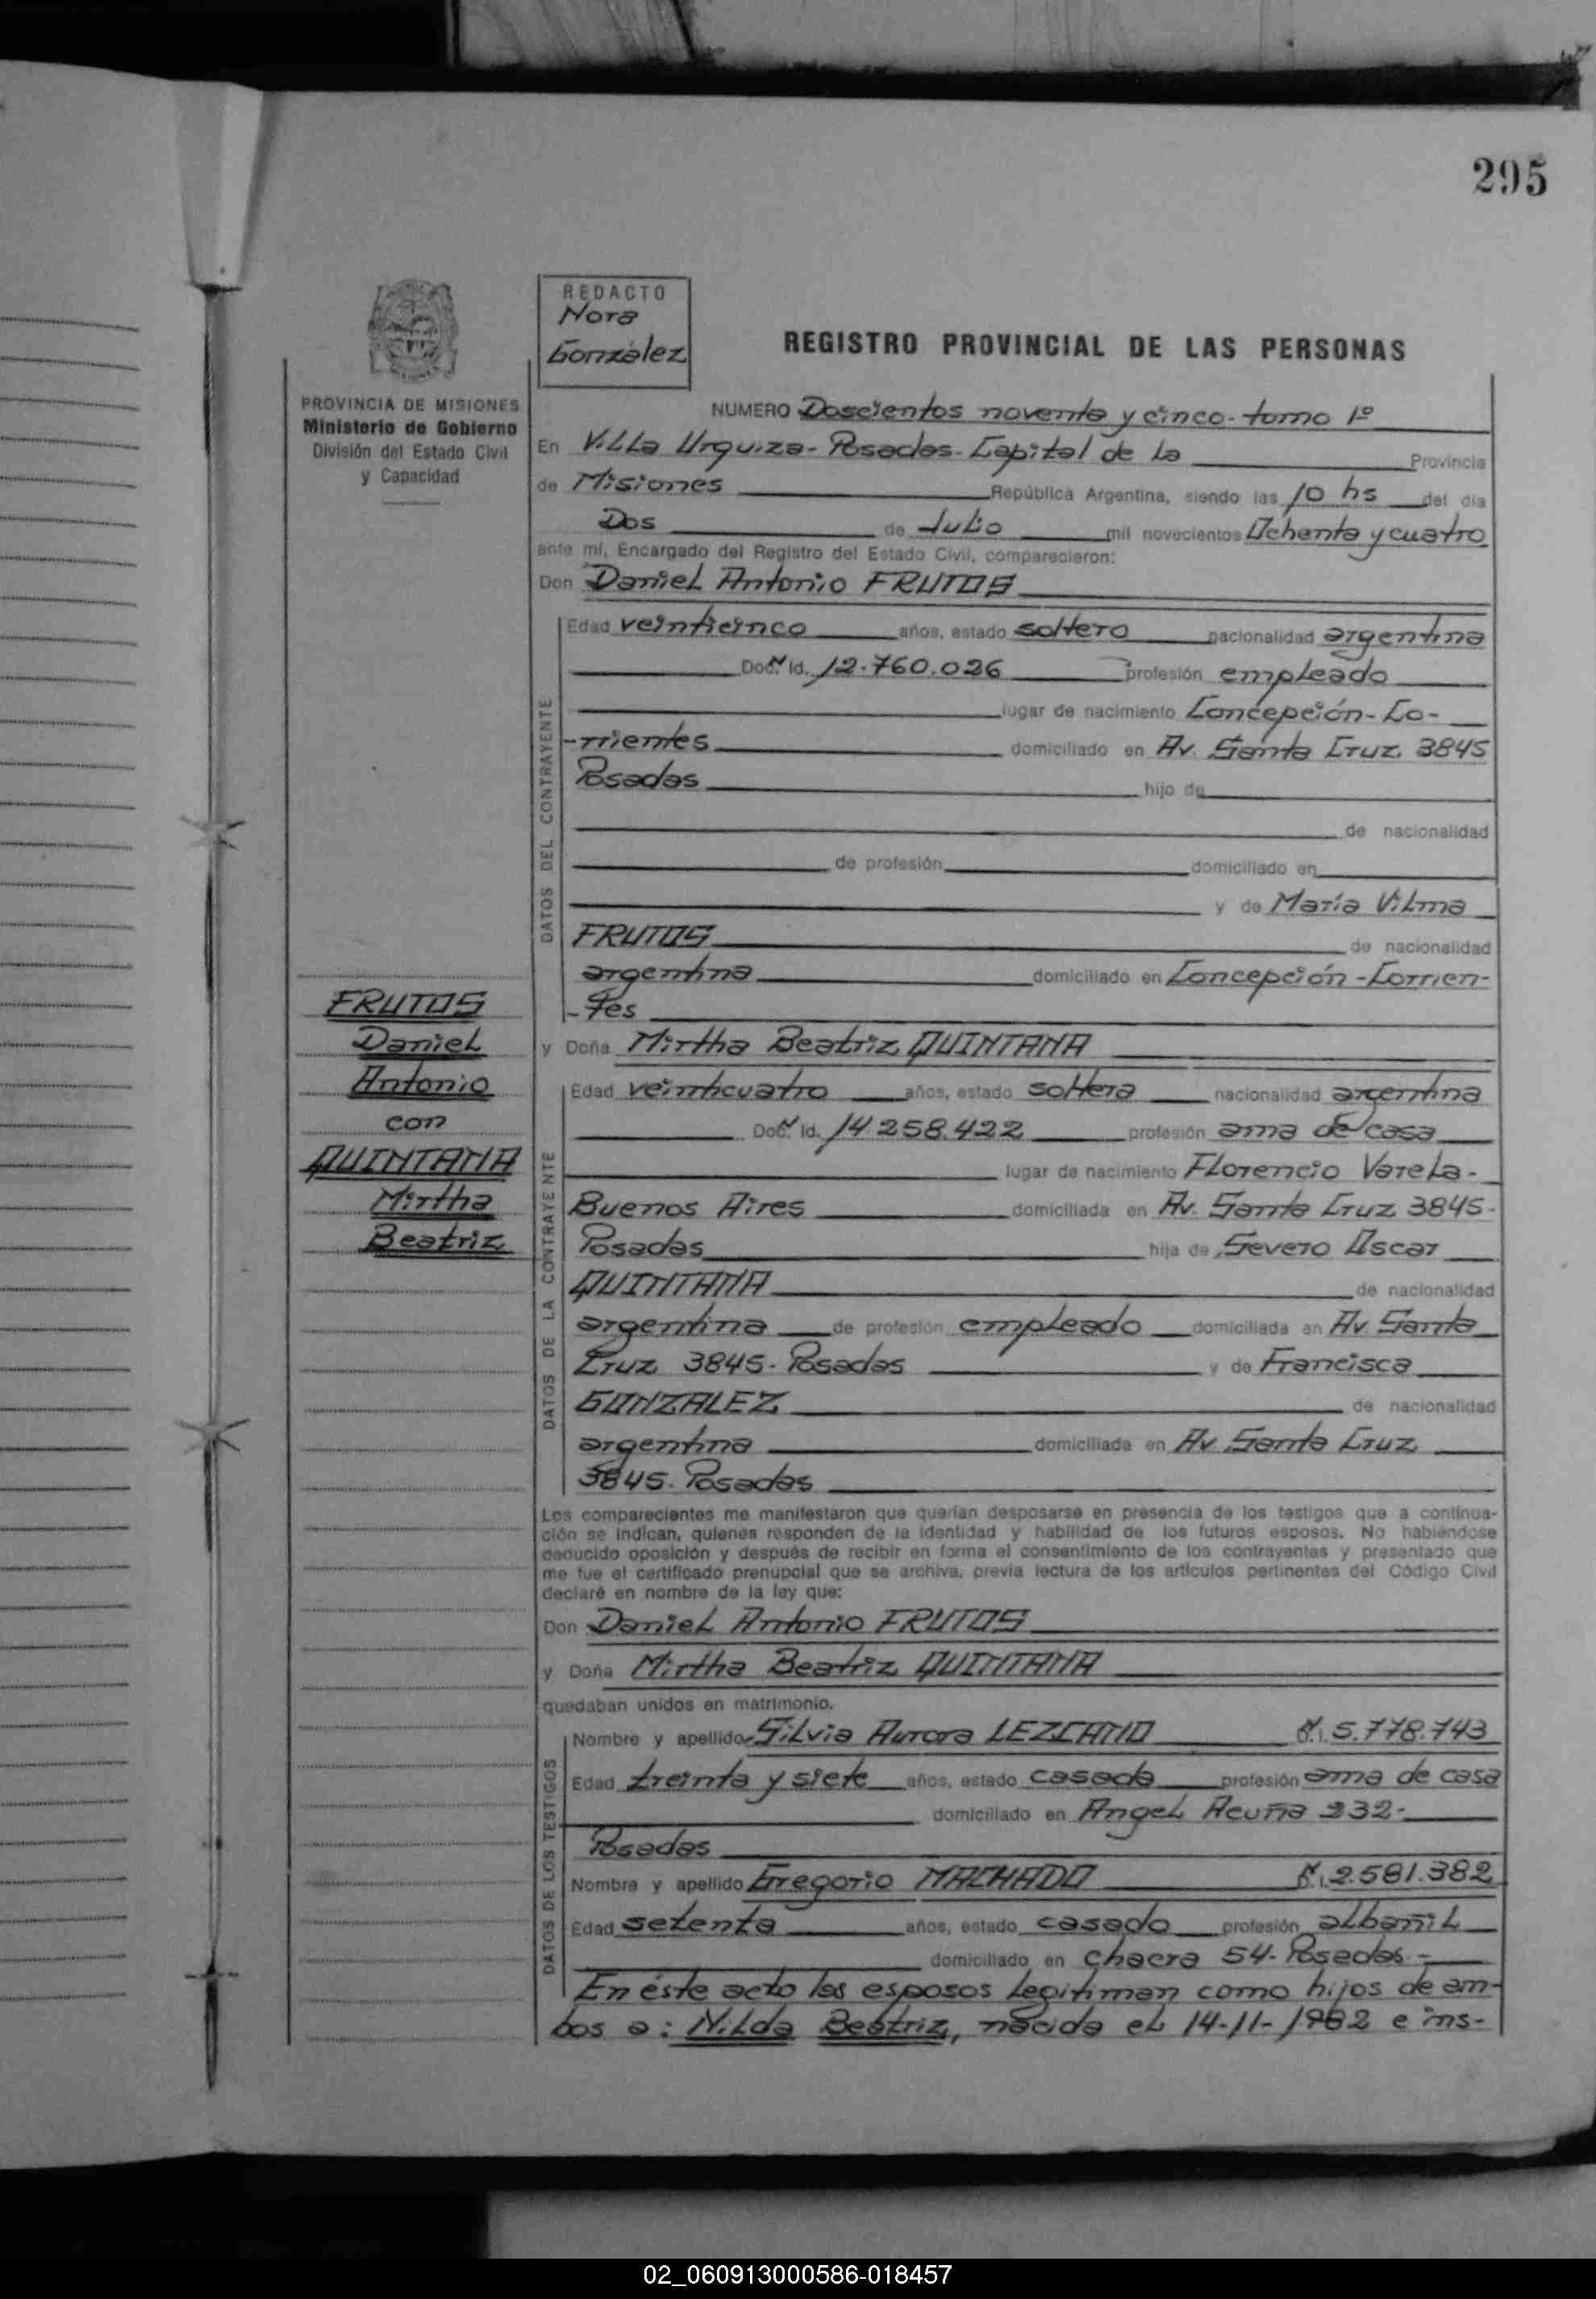 295
REDACTO
Nora
González
REGISTRO PROVINCIAL DE LAS PERSONAS
PROVINCIA DE MISIONES
Ministerio de Gobierno
División del Estado Civil
y Capacidad
NUMERO Doscientos noventa y cinco - tomo 1º
En Villa Urquiza - Posadas - Capital de la Provincia
de Misiones República Argentina, siendo las 10 hs del día
Dos de Julio mil novecientos Ochenta y cuatro
ante mí, Encargado del Registro del Estado Civil, comparecieron:
Don Daniel Antonio FRUTOS
DATOS DEL CONTRAYENTE
Edad veinticinco años, estado soltero nacionalidad argentina
Doc. Id. 12.760.026 profesión empleado
lugar de nacimiento Concepción - Co-
-rrientes domiciliado en Av. Santa Cruz 3845
Posadas hijo de
de nacionalidad
de profesión domiciliado en
y de María Vilma
FRUTOS de nacionalidad
argentina domiciliado en Concepción - Corrien-
-tes
FRUTOS
Daniel
Antonio
con
QUINTANA
Mirtha
Beatriz
y Doña Mirtha Beatriz QUINTANA
DATOS DE LA CONTRAYENTE
Edad veinticuatro años, estado soltera nacionalidad argentina
Doc. Id. 14.258.422 profesión ama de casa
lugar de nacimiento Florencio Varela -
Buenos Aires domiciliada en Av. Santa Cruz 3845 -
Posadas hija de Severo Oscar
QUINTANA de nacionalidad
argentina de profesión empleado domiciliada en Av Santa
Cruz 3845 - Posadas y de Francisca
GONZALEZ de nacionalidad
argentina domiciliada en Av Santa Cruz
3845. Posadas
Los comparecientes me manifestaron que querían desposarse en presencia de los testigos que a continua-
ción se indican, quienes responden de la identidad y habilidad de los futuros esposos. No habiéndose
deducido oposición y después de recibir en forma el consentimiento de los contrayentes y presentado que
me fue el certificado prenupcial que se archiva, previa lectura de los artículos pertinentes del Código Civil
declaré en nombre de la ley que:
Don Daniel Antonio FRUTOS
y Doña Mirtha Beatriz QUINTANA
quedaban unidos en matrimonio.
DATOS DE LOS TESTIGOS
Nombre y apellido Silvia Aurora LEZCANO 5.778.743
Edad treinta y siete años, estado casada profesión ama de casa
domiciliado en Angel Acuña 232 -
Posadas
Nombre y apellido Gregorio MACHADO 2.581.382
Edad setenta años, estado casado profesión albañil
domiciliado en chacra 54 - Posadas -
En éste acto los esposos legitiman como hijos de am-
bos a: Nilda Beatriz, nacida el 14-11-1982 e ins-
02_060913000586-018457